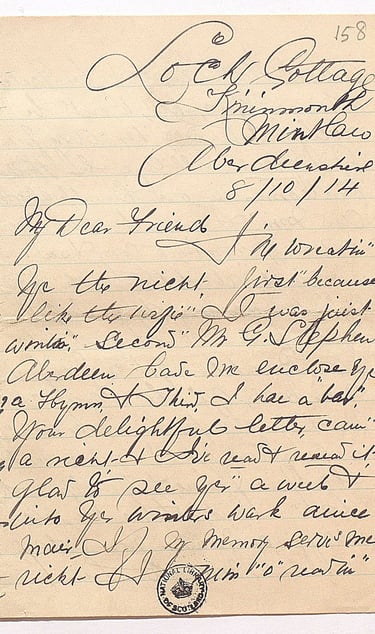 158
Lock Cottage
Kininmonth
Mintlaw
Aberdeenshire
8/10/14
My Dear Friends
I'm wreatin"
Ye the nicht, first "because
like the wife" I was jeist
wintin", Second" Mr G. Stephen
Aberdeen bade me enclose Ye
a Hymn, & Third, I hae a "bad"
Your delightful letter, cam'
a nicht & I've read & reread it
glad to see Yer a weel &
into Yer winters wark aince
mair If my Memory serves me
richt I min "o" readin"
NATIONAL LIBRARY OF SCOTLAND